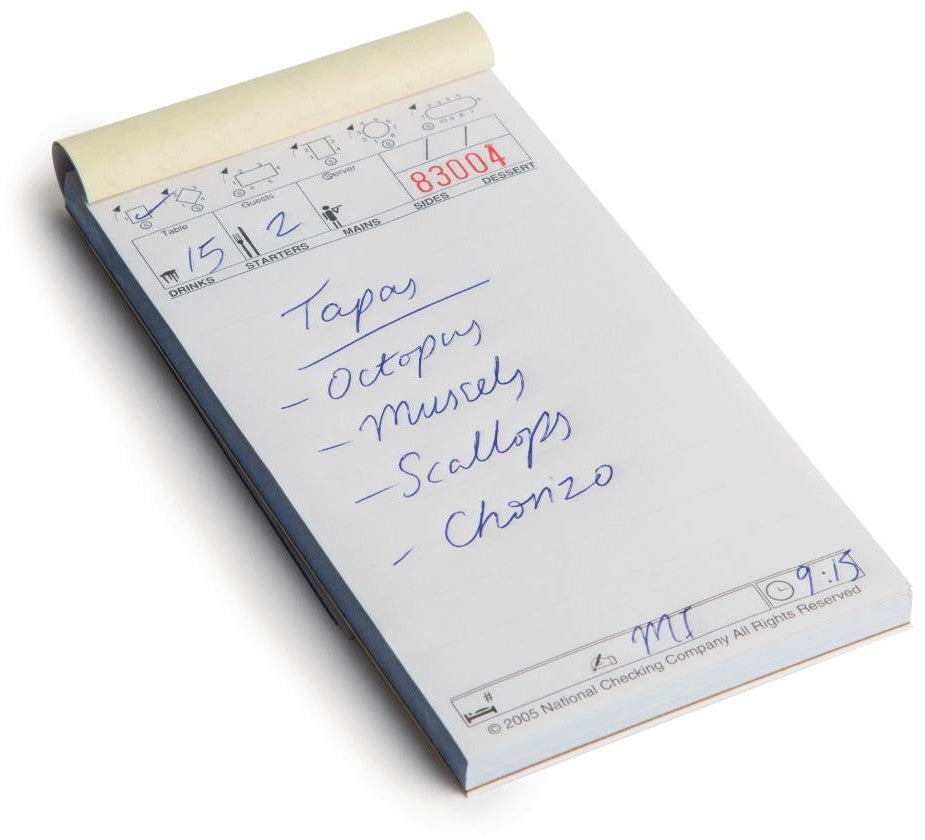 Table Guests Server
15 2 83004
DRINKS STARTERS MAINS SIDES DESSERT
Tapas
- Octopus
- Mussels
- Scallops
- Chorizo
# MI 9:15
© 2005 National Checking Company All Rights Reserved